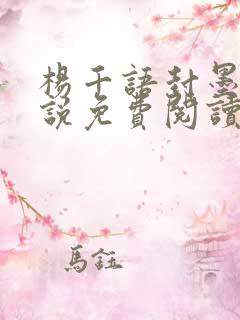 楊千語封墨
說免費閱讀
馬鈺